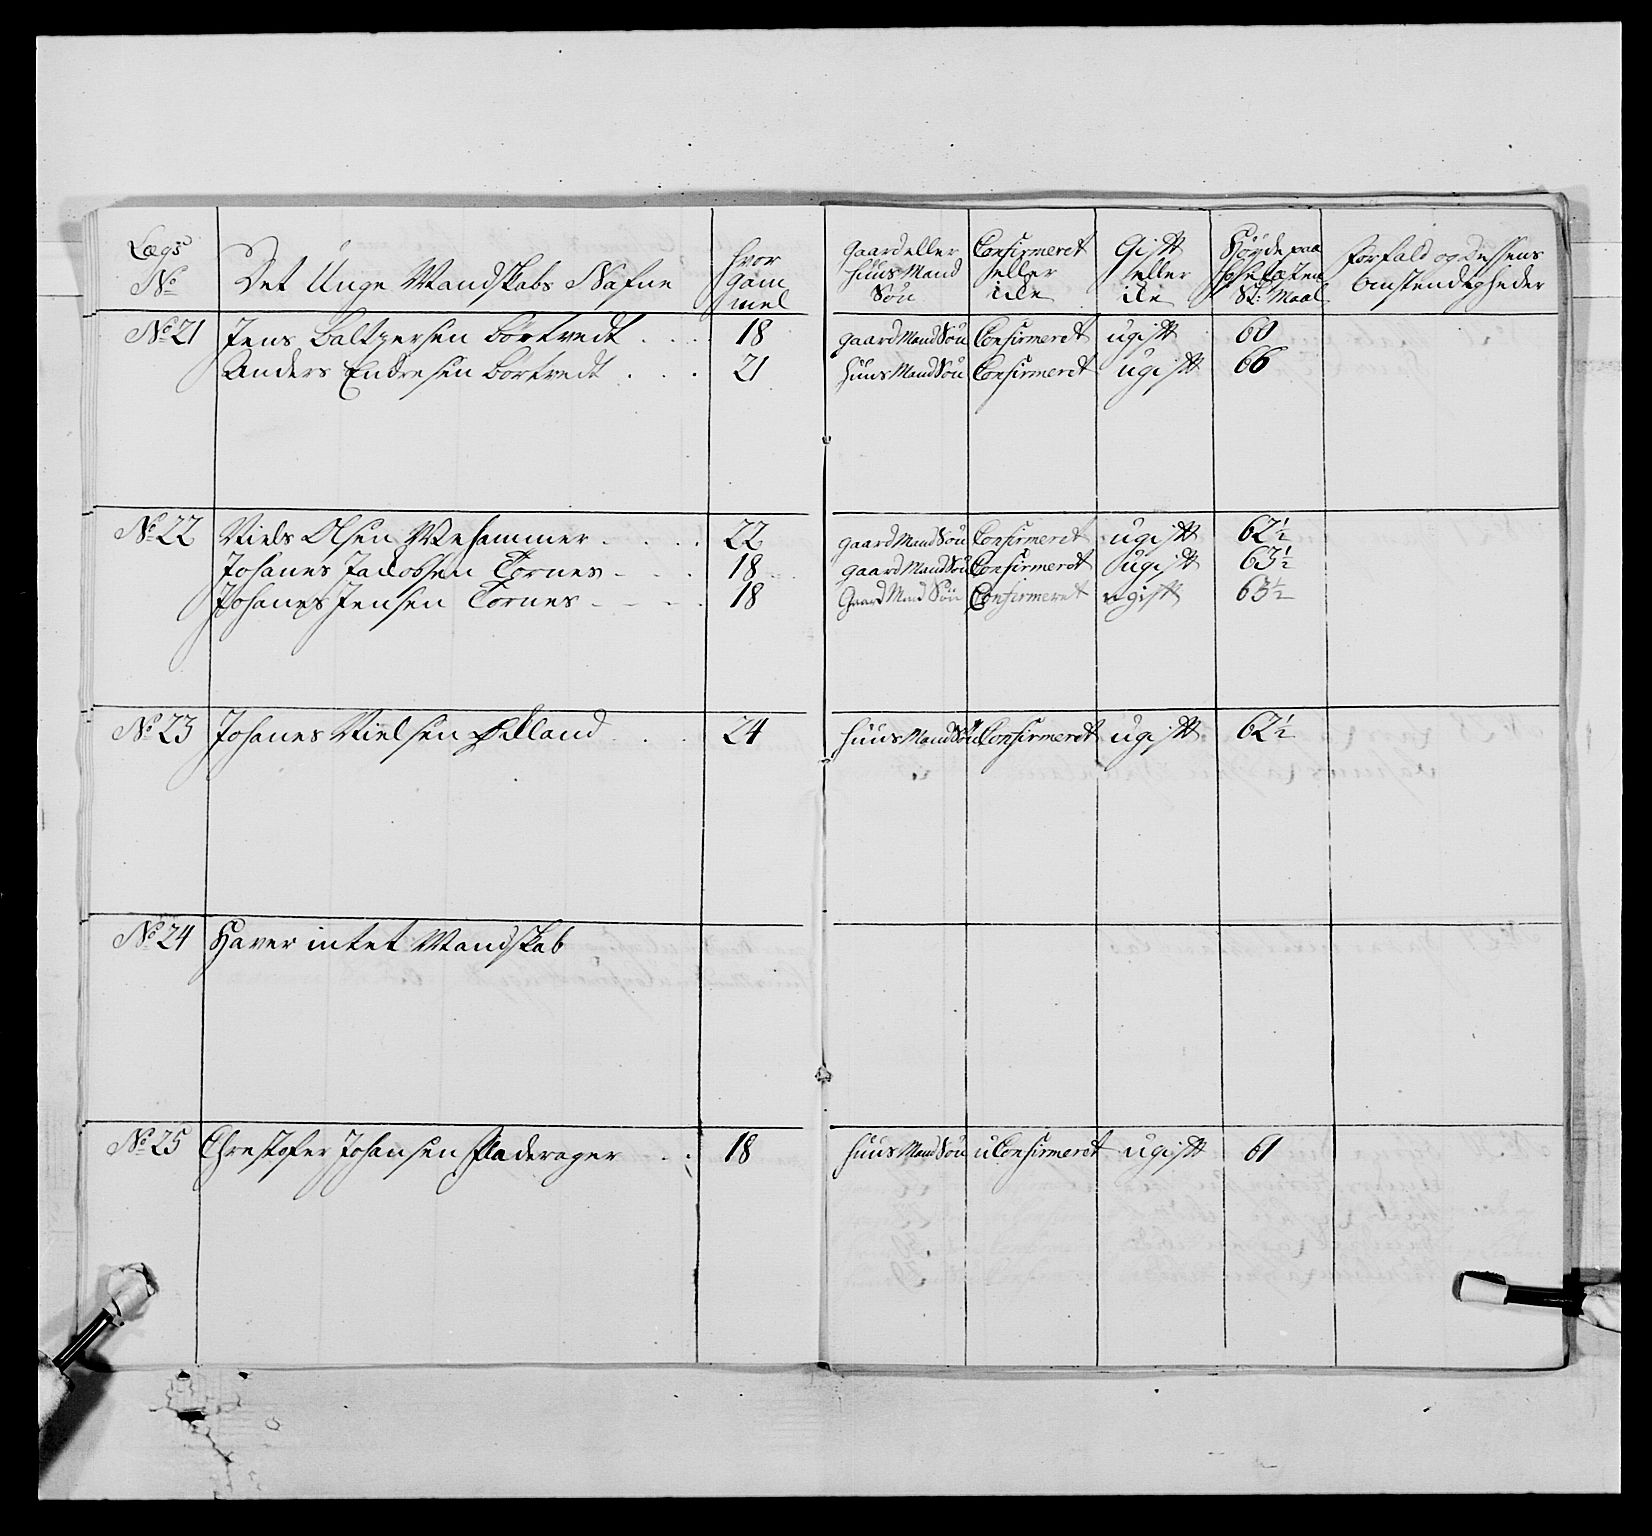 Lægs No | Det Unge Mandskabs Nafne | hvor Gammel | gaard eller Huus Mand Søn | Confirmeret eller ikke | Gift eller ike | Høyde paa Sl: Maal | forfald og Dessens Omstendigheder
No 21 | Jens Baltzersen Børtvedt | 18 | gaard Mand Søn | Confirmeret | ugift | 60
Anders Endresen Bortvedt | 21 | Huus Mand Søn | Confirmeret | ugift | 66
No 22 | Niels Olsen Wehammer | 22 | gaard Mand Søn | Confirmeret | ugift | 62½
Johanes Jacobsen Tornes | 18 | gaard Mand Søn | Confirmeret | ugift | 63½
Johanes Jensen Tornes | 18 | Gaard Mand Søn | Confirmeret | ugift | 63½
No 23 | Johanes Nielsen Ødland | 24 | Huus Mand Søn | Confirmeret | ugift | 62½
No 24 | Haver intet Mandskab
No 25 | Christofer Johansen fladerager | 18 | Huus Mand Søn | uConfirmeret | ugift | 61